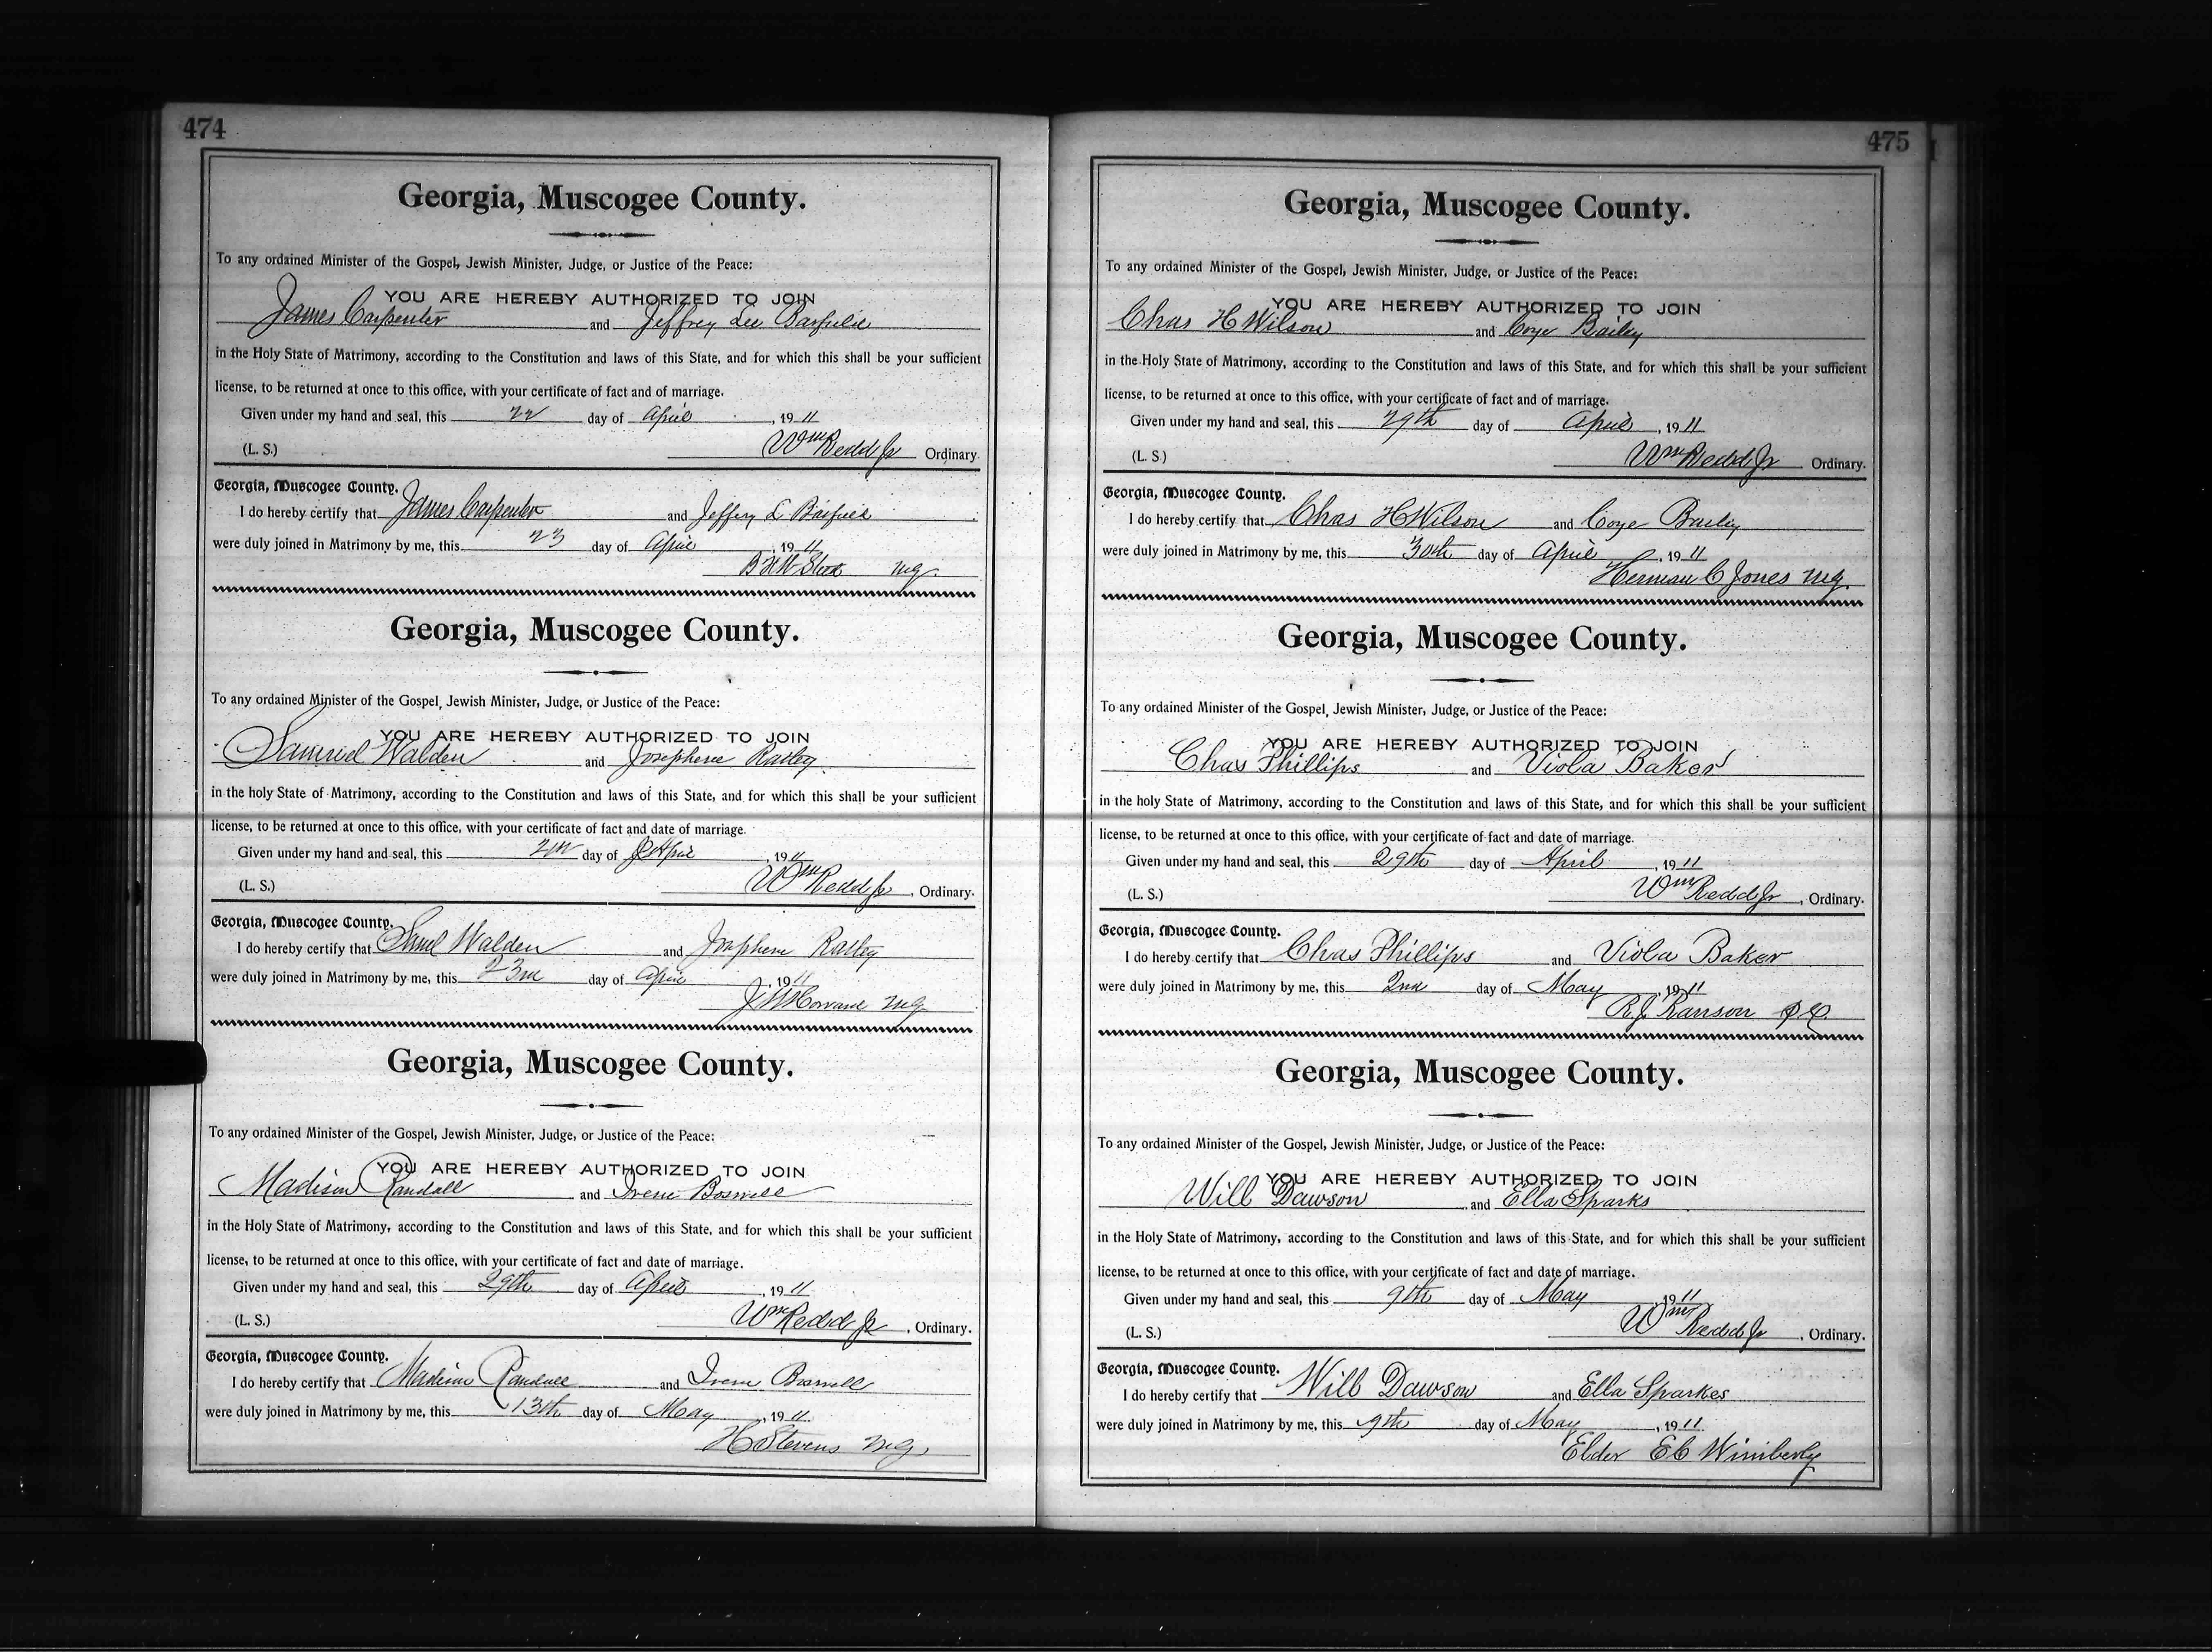 474
Georgia, Muscogee County.
To any ordained Minister of the Gospel, Jewish Minister, Judge, or Justice of the Peace:
YOU ARE HEREBY AUTHORIZED TO JOIN
James Carpenter and Jeffrey Lee Barfield
in the Holy State of Matrimony, according to the Constitution and laws of this State, and for which this shall be your sufficient
license, to be returned at once to this office, with your certificate of fact and of marriage.
Given under my hand and seal, this 22 day of April , 19 11
(L. S.) Wm Redd Jr Ordinary.
Georgia, Muscogee County.
I do hereby certify that James Carpenter and Jeffery L Barfield
were duly joined in Matrimony by me, this 23 day of April , 19 11
MG.
Georgia, Muscogee County.
To any ordained Minister of the Gospel, Jewish Minister, Judge, or Justice of the Peace:
YOU ARE HEREBY AUTHORIZED TO JOIN
Samuel Walden and Josephene Ratley
in the holy State of Matrimony, according to the Constitution and laws of this State, and for which this shall be your sufficient
license, to be returned at once to this office, with your certificate of fact and date of marriage.
Given under my hand and seal, this day of April , 19 11
(L. S.) Wm Redd Jr , Ordinary.
Georgia, Muscogee County.
I do hereby certify that Saml Walden and Josephene Ratley
were duly joined in Matrimony by me, this 23rd day of April , 19 11
MG
Georgia, Muscogee County.
To any ordained Minister of the Gospel, Jewish Minister, Judge, or Justice of the Peace:
YOU ARE HEREBY AUTHORIZED TO JOIN
Madison Randall and Irene Boswell
in the Holy State of Matrimony, according to the Constitution and laws of this State, and for which this shall be your sufficient
license, to be returned at once to this office, with your certificate of fact and date of marriage.
Given under my hand and seal, this 29th day of April , 19 11
(L. S.) Wm Redd Jr , Ordinary.
Georgia, Muscogee County.
I do hereby certify that Madison Randall and Irene Boswell
were duly joined in Matrimony by me, this 13th day of May , 19 11.
H Stevens MG,
475
Georgia, Muscogee County.
To any ordained Minister of the Gospel, Jewish Minister, Judge, or Justice of the Peace:
YOU ARE HEREBY AUTHORIZED TO JOIN
Chas H Wilson and Coye Bailey
in the Holy State of Matrimony, according to the Constitution and laws of this State, and for which this shall be your sufficient
license, to be returned at once to this office, with your certificate of fact and of marriage.
Given under my hand and seal, this 29th day of April , 19 11
(L. S.) Wm Redd Jr Ordinary.
Georgia, Muscogee County.
I do hereby certify that Chas H Wilson and Coye Bailey
were duly joined in Matrimony by me, this 30th day of April , 19 11
Herman C Jones MG.
Georgia, Muscogee County.
To any ordained Minister of the Gospel, Jewish Minister, Judge, or Justice of the Peace:
YOU ARE HEREBY AUTHORIZED TO JOIN
Chas Phillips and Viola Baker
in the holy State of Matrimony, according to the Constitution and laws of this State, and for which this shall be your sufficient
license, to be returned at once to this office, with your certificate of fact and date of marriage.
Given under my hand and seal, this 29th day of April , 19 11
(L. S.) Wm Redd Jr , Ordinary.
Georgia, Muscogee County.
I do hereby certify that Chas Phillips and Viola Baker
were duly joined in Matrimony by me, this 2nd day of May , 19 11
R.J. Ranson
Georgia, Muscogee County.
To any ordained Minister of the Gospel, Jewish Minister, Judge, or Justice of the Peace:
YOU ARE HEREBY AUTHORIZED TO JOIN
Will Dawson and Ella Sparks
in the Holy State of Matrimony, according to the Constitution and laws of this State, and for which this shall be your sufficient
license, to be returned at once to this office, with your certificate of fact and date of marriage.
Given under my hand and seal, this 9th day of May , 19 11
(L. S.) Wm Redd Jr , Ordinary.
Georgia, Muscogee County.
I do hereby certify that Will Dawson and Ella Sparkes
were duly joined in Matrimony by me, this 9th day of May , 19 11.
Elder E C Wimberly